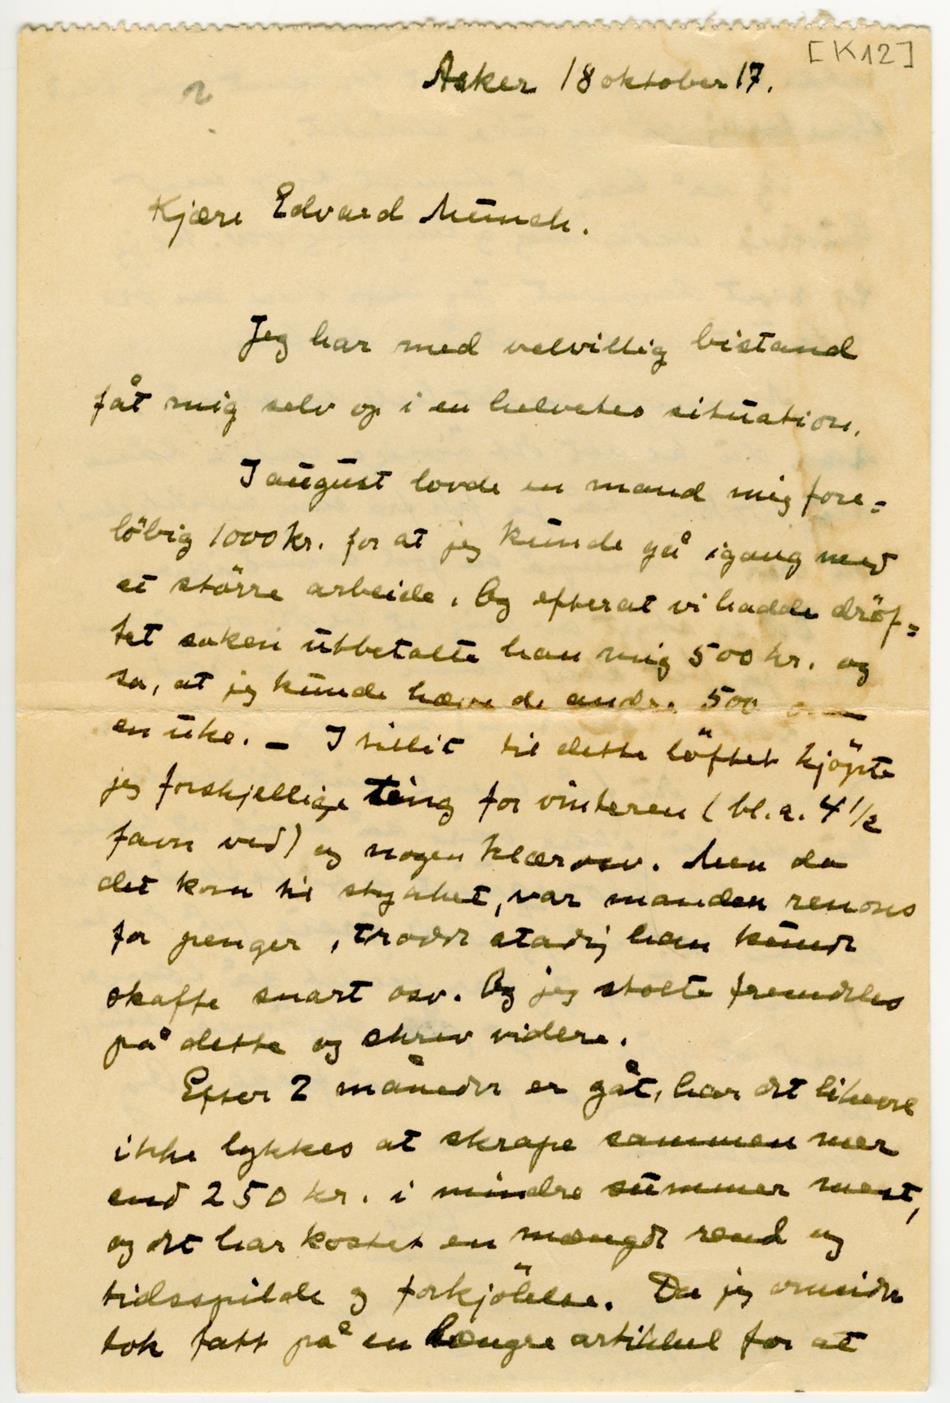 [K12]
2
Asker 18 oktober 17.
Kjære Edvard Munch.
Jeg har med velvillig bistand
fåt mig selv op i en helvetes situation.
I august lovde en mand mig fore=
löbig 1000 kr. for at jeg kunde gå igang med
et större arbeide. Og efterat vi hadde dröf=
tet saken utbetalte han mig 500 kr. og
sa, at jeg kunde hæve de andre 500 om
en uke. – I tillit til dette löftet kjöpte
jeg forskjellige ting for vinteren (bl.a. 4 1/2
favn ved) og nogen klær osv. Men da
det kom til stykket, var manden renons
for penger, trodde stadig han kunde
skaffe snart osv. Og jeg stolte fremdeles
på dette og skrev videre.
Efter 2 måneder er gåt, har det likevel
ikke lykkes at skrape sammen mer
end 250 kr. i mindre summer mest,
og det har kostet en mængde rend og
tidsspilde og forkjölelse. Da jeg omsider
tok fatt på en længre artikkel for at